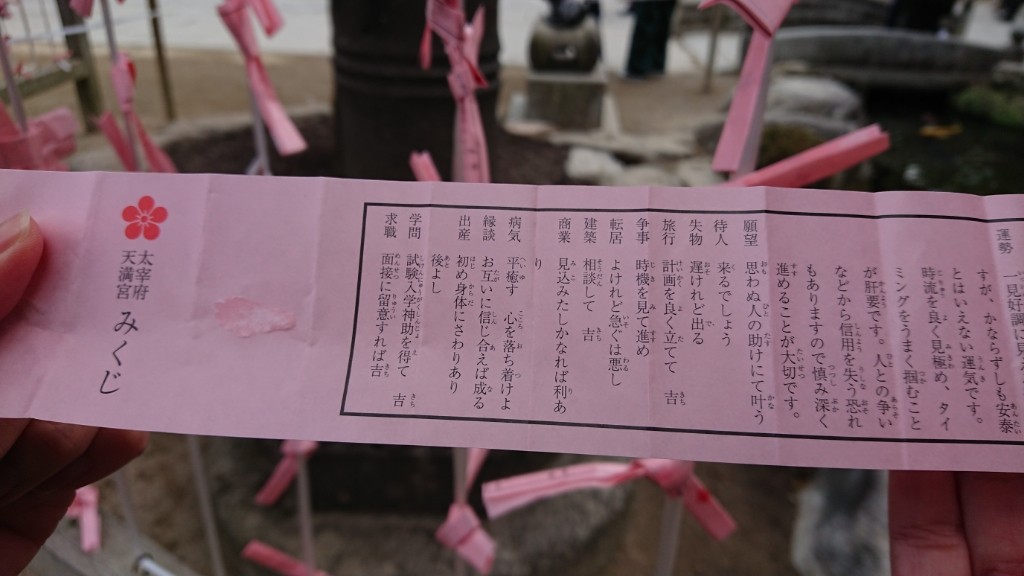 運勢
一見好調に見
すが、かならずしも安泰
とはいえない運気です。
時流を良く見極め、タイ
ミングをうまく掴むこと
が肝要です。人との争い
などから信用を失う恐れ
もありますので慎み深く
進めることが大切です。
願望 思わぬ人の助けにて叶う
待人 来るでしょう
失物 遅けれど出る
旅行 計画を良く立てて 吉
争事 時機を見て進め
転居 よけれど急ぐは悪し
建築 相談して 吉
商業 見込みたしかなれば利あ
り
病気 平癒す 心を落ち着けよ
縁談 お互いに信じ合えば成る
出産 初め身体にさわりあり
後よし
学問 試験入学神助を得て 吉
求職 面接に留意すれば吉
太宰府
天満宮 みくじ